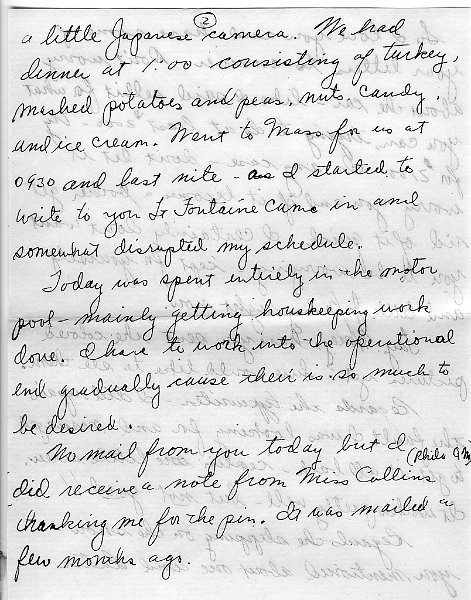 2
a little Japanese camera. We had
dinner at 1:00 consisting of turkey,
mashed potatoes and peas, nuts, candy,
and ice cream. Went to Mass for us at
0930 and last nite - as I started to
write to you Lt Fontaine came in and
somewhat disrupted my schedule.
Today was spent entirely in the motor
pool - mainly getting houskeeping work
done. I have to work into the operational
end gradually cause their is so much to
be desired.
No mail from you today but I (Phila
did receive a note from Miss Collins
thanking me for the pin. It was mailed a
few months ago.